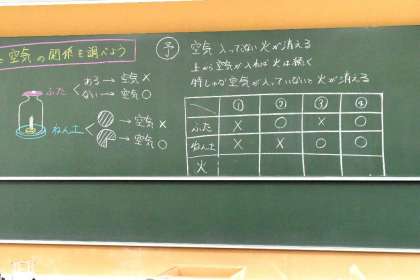 空気の関係を調べよう
ふた
ある→空気×
ない→空気○
ねん土
→空気×
→空気○
予
空気入ってない火が消える
上から空気が入れば火は続く
空気が入っていないと火が消える
① ② ③ ④
ふた × ○ × ○
ねん土 × × ○ ○
火